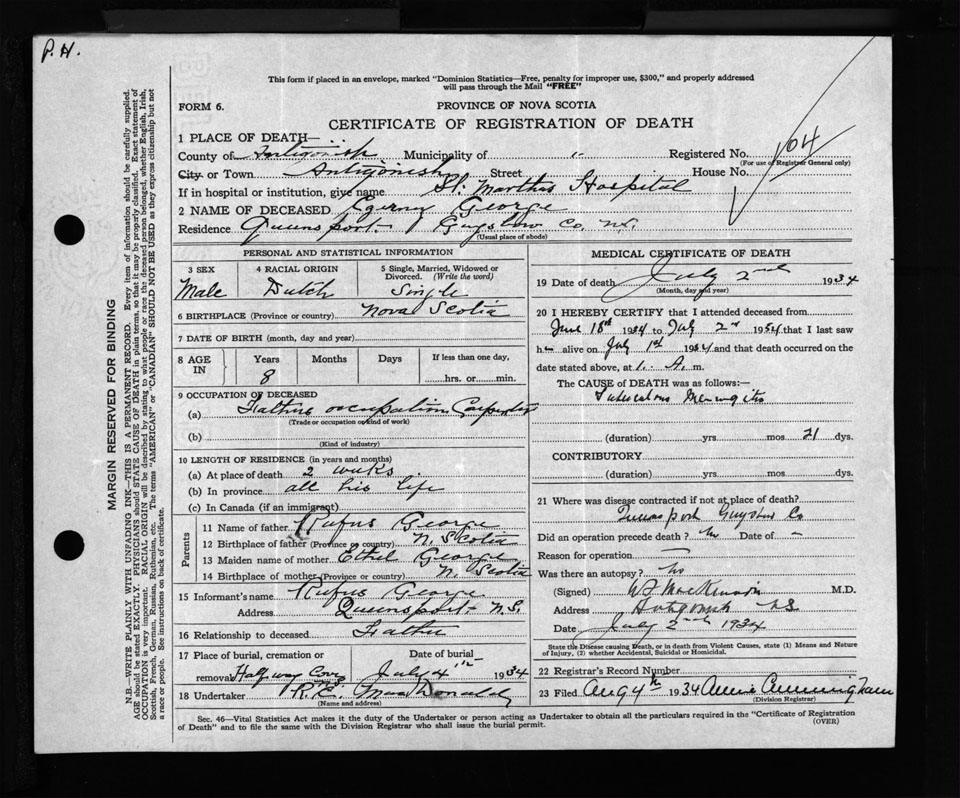 P. H.
This form if placed in an envelope, marked "Dominion Statistics—Free, penalty for improper use, $300," and properly addressed
will pass through the Mail "FREE"
FORM 6.
PROVINCE OF NOVA SCOTIA
CERTIFICATE OF REGISTRATION OF DEATH
1 PLACE OF DEATH—
County of Antigonish Municipality of " Registered No. 104
(For use of Registrar General only)
City or Town Antigonish Street House No.
If in hospital or institution, give name St. Marthas Hospital
2 NAME OF DECEASED George
Residence Queensport Guysboro Co. N.S.
(Usual place of abode)
PERSONAL AND STATISTICAL INFORMATION
3 SEX 4 RACIAL ORIGIN 5 Single, Married, Widowed or Divorced. (Write the word)
Male Dutch Single
6 BIRTHPLACE (Province or country) Nova Scotia
7 DATE OF BIRTH (month, day and year)
8 AGE IN Years Months Days If less than one day,
8 hrs. or min.
9 OCCUPATION OF DECEASED
(a) Fathers occupation Carpenter
(Trade or occupation or kind of work)
(b)
(Kind of industry)
10 LENGTH OF RESIDENCE (in years and months)
(a) At place of death 2 weeks
(b) In province all his life
(c) In Canada (if an immigrant)
Parents
11 Name of father Rufus George
12 Birthplace of father (Province or country) N. Scotia
13 Maiden name of mother Ethel George
14 Birthplace of mother (Province or country) N. Scotia
15 Informant's name Rufus George
Address Queensport N.S.
16 Relationship to deceased Father
17 Place of burial, cremation or removal Date of burial
Halfway Cove July 4th 1934
18 Undertaker R.E. MacDonald
(Name and address)
MEDICAL CERTIFICATE OF DEATH
19 Date of death July 2nd 1934
(Month, day and year)
20 I HEREBY CERTIFY that I attended deceased from
June 18th 1934 to July 2nd 1934 that I last saw
h alive on July 1st 1934 and that death occurred on the
date stated above, at 1. A. m.
The CAUSE of DEATH was as follows:—
Tuberculous Meningitis
(duration) yrs. mos 21 dys.
CONTRIBUTORY
(duration) yrs. mos dys.
21 Where was disease contracted if not at place of death?
Queensport Guysboro Co
Did an operation precede death? No Date of –
Reason for operation —
Was there an autopsy? No
(Signed) W.F. MacKinnon M.D.
Address Antigonish N.S.
Date July 2nd 1934
State the Disease causing Death, or in death from Violent Causes, state (1) Means and Nature
of Injury, (2) whether Accidental, Suicidal or Homicidal.
22 Registrar's Record Number
23 Filed Aug 4th 1934 Annie Cunningham
(Division Registrar)
Sec. 46—Vital Statistics Act makes it the duty of the Undertaker or person acting as Undertaker to obtain all the particulars required in the "Certificate of Registration
of Death" and to file the same with the Division Registrar who shall issue the burial permit.
(OVER)
MARGIN RESERVED FOR BINDING
N.B.—WRITE PLAINLY WITH UNFADING INK—THIS IS A PERMANENT RECORD. Every item of information should be carefully supplied.
AGE should be stated EXACTLY. PHYSICIANS should STATE CAUSE OF DEATH in plain terms, so that it may be properly classified. Exact statement of
OCCUPATION is very important. RACIAL ORIGIN will be described by stating to what people or race the deceased person belonged, whether English, Irish,
Scottish, French, German, Russian, Ruthenian, etc. The terms "AMERICAN" or "CANADIAN" SHOULD NOT BE USED as they express citizenship but not
a race or people. See instructions on back of certificate.